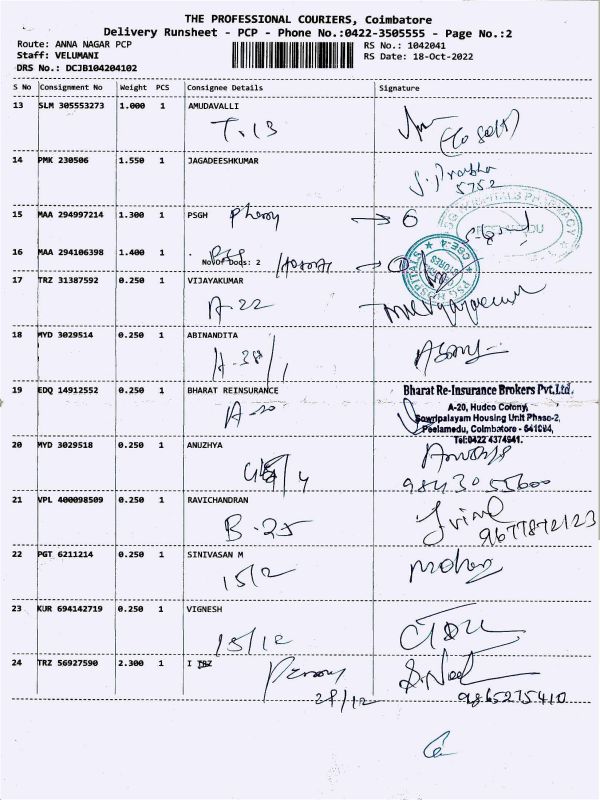 THE PROFESSIONAL COURIERS, Coimbatore
Delivery Runsheet - PCP - Phone No.:0422-3505555 - Page No.:2
Route: ANNA NAGAR PCP
RS No.: 1042041
Staff: VELUMANI
RS Date: 18-Oct-2022
DRS No.: DCJB104204102
S No Consignment No Weight PCS Consignee Details Signature
13 SLM 305553273 1.000 1 AMUDAVALLI
T.13
14 PMK 230506 1.550 1 JAGADEESHKUMAR
S. Prabha
5752
15 MAA 294997214 1.300 1 PSGH
6
16 MAA 294106398 1.400 1
NoOf Docs: 2
PSG HOSPITALS
STORES
CBE-4
17 TRZ 31387592 0.250 1 VIJAYAKUMAR
A-22
18 MYD 3029514 0.250 1 ABINANDITA
19 EDQ 14912552 0.250 1 BHARAT REINSURANCE
A-20
Bharat Re-Insurance Brokers Pvt.Ltd.
A-20, Hudco Colony,
Sowripalayam Housing Unit Phase-2,
Peelamedu, Coimbatore - 641004,
Tel:0422 4374941.
20 MYD 3029518 0.250 1 ANUZHYA
9843055600
21 VPL 400098509 0.250 1 RAVICHANDRAN
B-25
9677872123
22 PGT 6211214 0.250 1 SINIVASAN M
15/2
23 KUR 694142719 0.250 1 VIGNESH
15/12
24 TRZ 56927590 2.300 1 I TRZ
28/12
9865275410